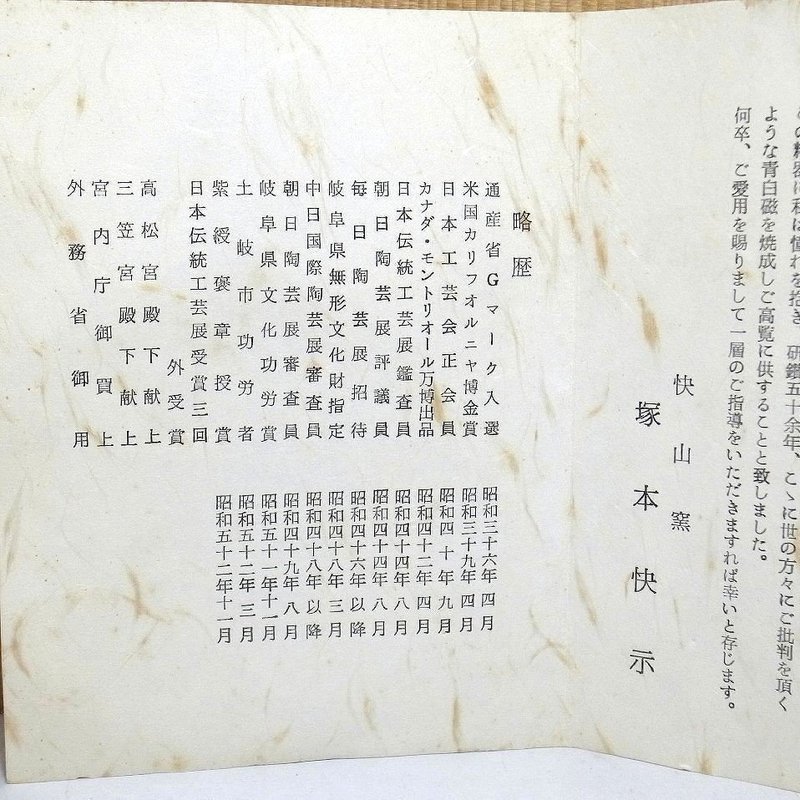 の精器に私は憧れを抱き 研鑽五十余年、こゝに世の方々にご批判を頂く
ような青白磁を焼成しご高覧に供することと致しました。
何卒、ご愛用を賜りまして一層のご指導をいただきますれば幸いと存じます。
快山窯
塚本快示
略歴
通産省Gマーク入選 昭和三十六年四月
米国カリフオルニヤ博金賞 昭和三十九年四月
日本工芸会正会員 昭和四十年九月
カナダ・モントリオール万博出品 昭和四十二年四月
日本伝統工芸展鑑査員 昭和四十四年八月
朝日陶芸展評議員 昭和四十四年八月
毎日陶芸展招待 昭和四十六年以降
岐阜県無形文化財指定 昭和四十八年三月
中日国際陶芸展審査員 昭和四十八年以降
朝日陶芸展審査員 昭和四十九年八月
岐阜県文化功労賞 昭和五十一年十一月
土岐市功労者 昭和五十二年三月
紫綬褒章授賞 昭和五十二年十一月
日本伝統工芸展受賞三回
外受賞
高松宮殿下献上
三笠宮殿下献上
宮内庁御買上
外務省御用